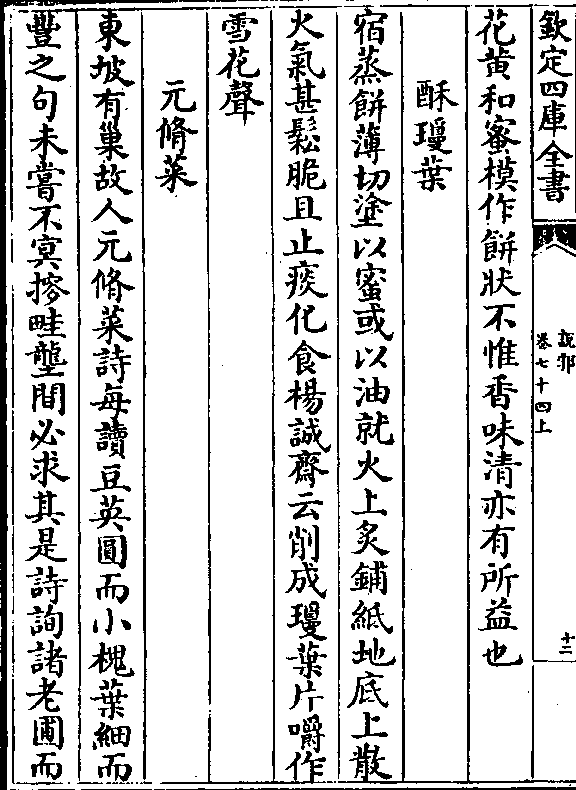 欽定四庫全書
說郛
卷七十四上
十二
花黄和蜜模作餅狀不惟香味清亦有所益也
酥瓊葉
宿蒸餅薄切塗以蜜或以油就火上炙鋪紙地底上散
火氣甚鬆脆且止痰化食楊誠齋云削成瓊葉片嚼作
雪花聲
元脩菜
東坡有巢故人元脩菜詩每讀豆英圓而小槐葉細而
豐之句未嘗不冥搈畦壟間必求其是詩詢諸老圃而